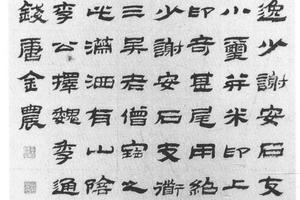 逸少謝安石友
小璽并米印上
印奇甚尾用紹
少謝安石支衜
三吳老僧寶之
此滿洒有山陰
李公擇魏李通
錢唐金農